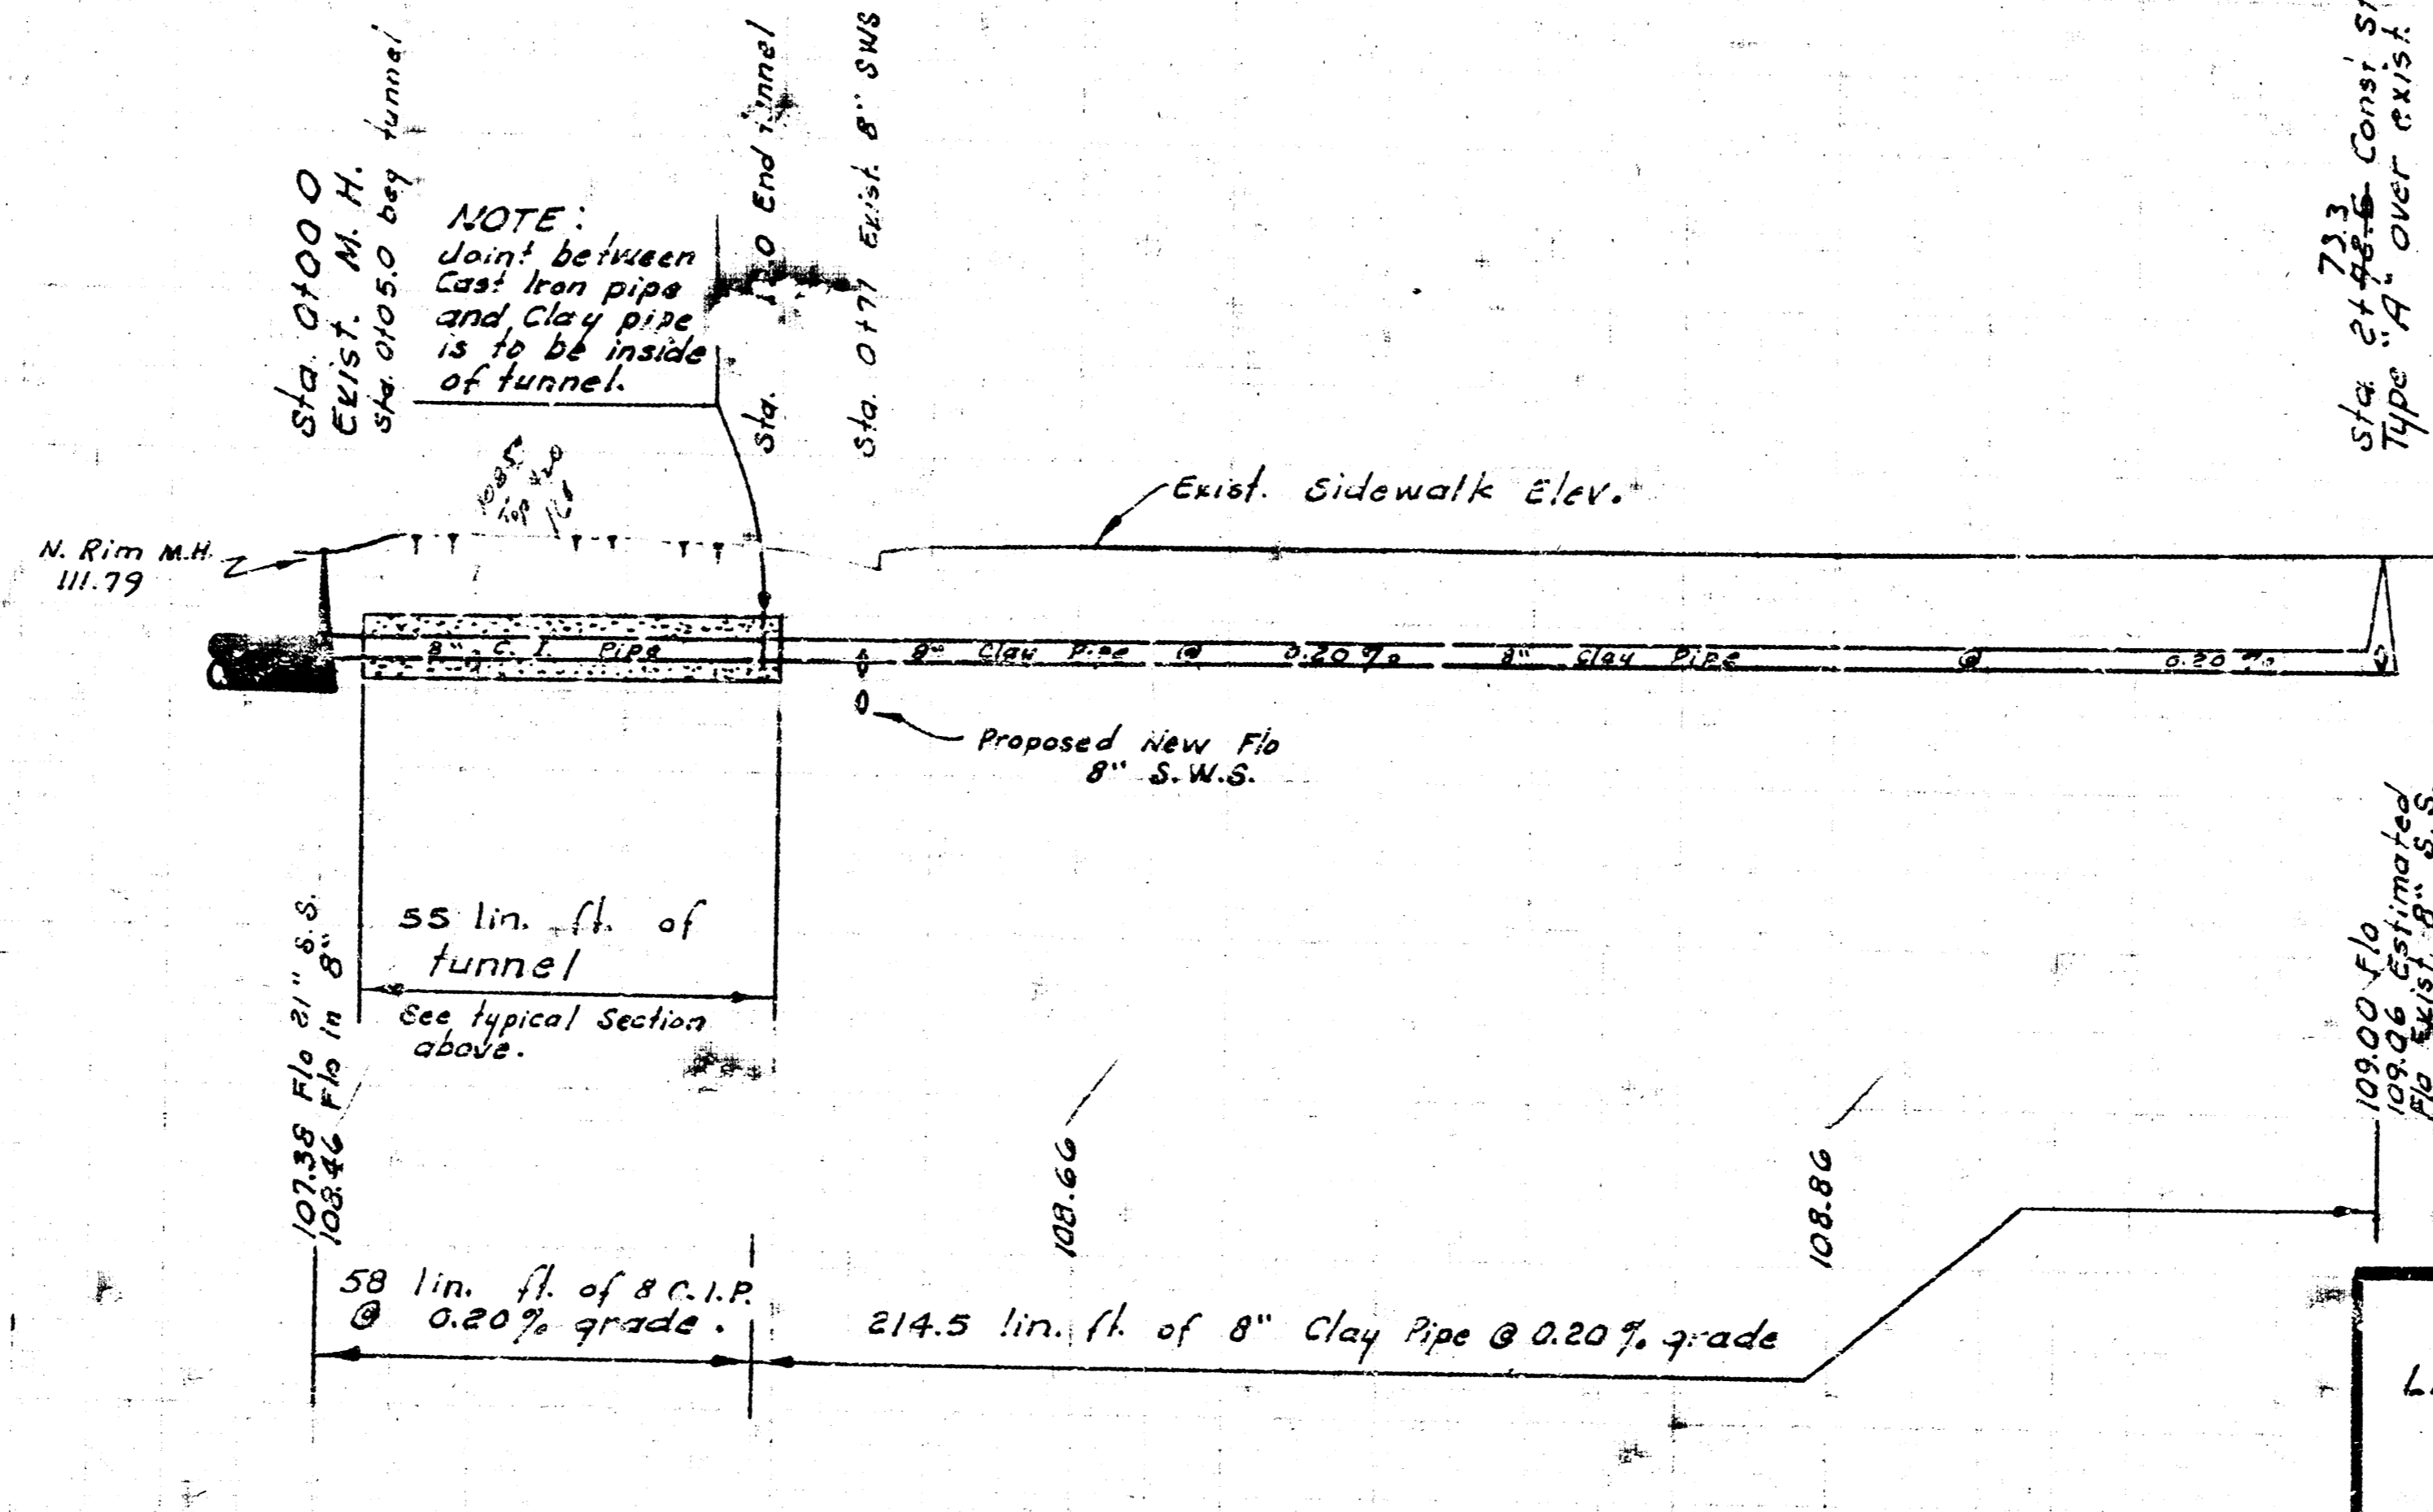 Sta. 0+00 0
Exist. M. H.
Sta. 0+05.0 beg tunnel
NOTE:
Joint between
Cast Iron pipe
and Clay pipe
is to be inside
of tunnel.
Sta. End tunnel
Sta. 0+77 Exist. 8" SWS
73.3
Sta 2+48.6 Const
Type "A" over exist.
Exist. Sidewalk Elev.
N. Rim M.H.
111.79
8" C. I. Pipe
8" Clay Pipe @ 0.20 % 8" Clay Pipe @ 0.20 %
Proposed New Flo
8" S.W.S.
55 lin. ft. of
tunnel
See typical Section
above.
107.38 Flo 21" S.S.
108.46 Flo in 8"
108.66
108.86
109.00 Flo
109.06 Estimated
Flo Exist. 8" S.S.
58 lin. ft. of 8 C.I.P.
@ 0.20% grade.
214.5 lin. ft. of 8" Clay Pipe @ 0.20 % grade